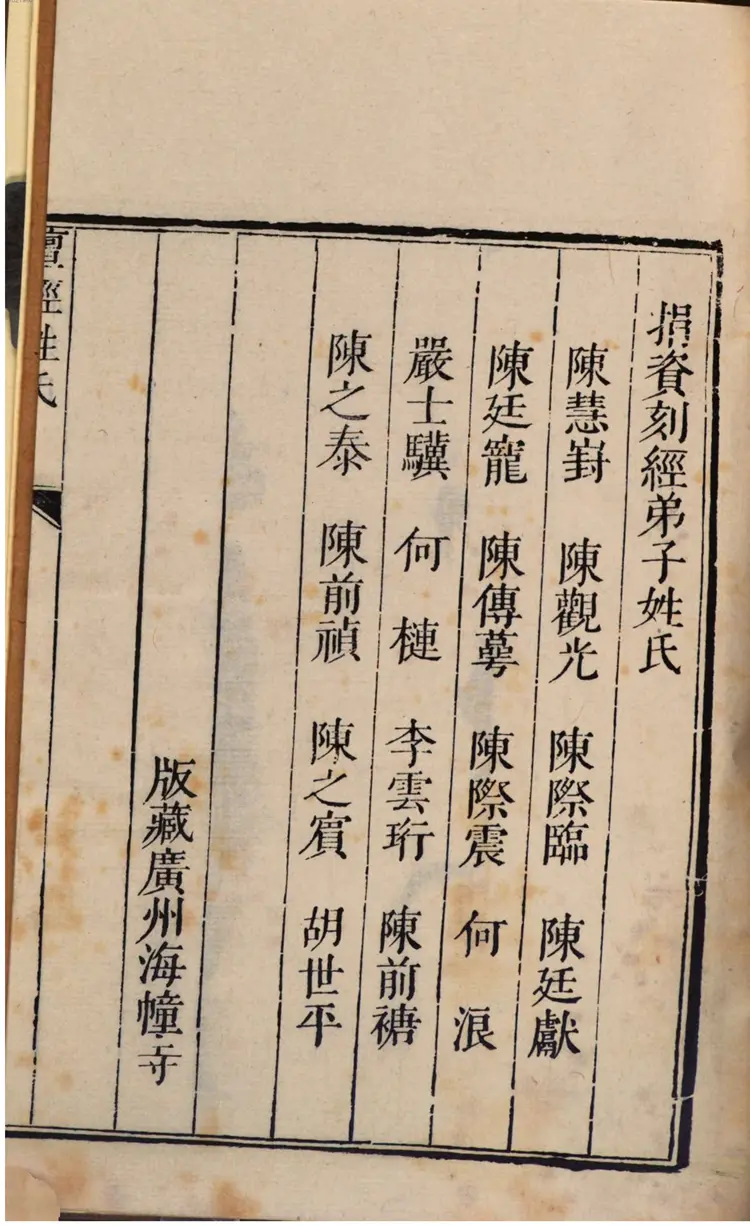 捐資刻經弟子姓氏
陳慧𡺽 陳觀光 陳際臨 陳廷獻
陳廷寵 陳傳蕚 陳際震 何浪
嚴士驥 何槤 李雲珩 陳前禟
陳之泰 陳前禎 陳之賔 胡世平
版藏廣州海幢寺
壇經姓氏